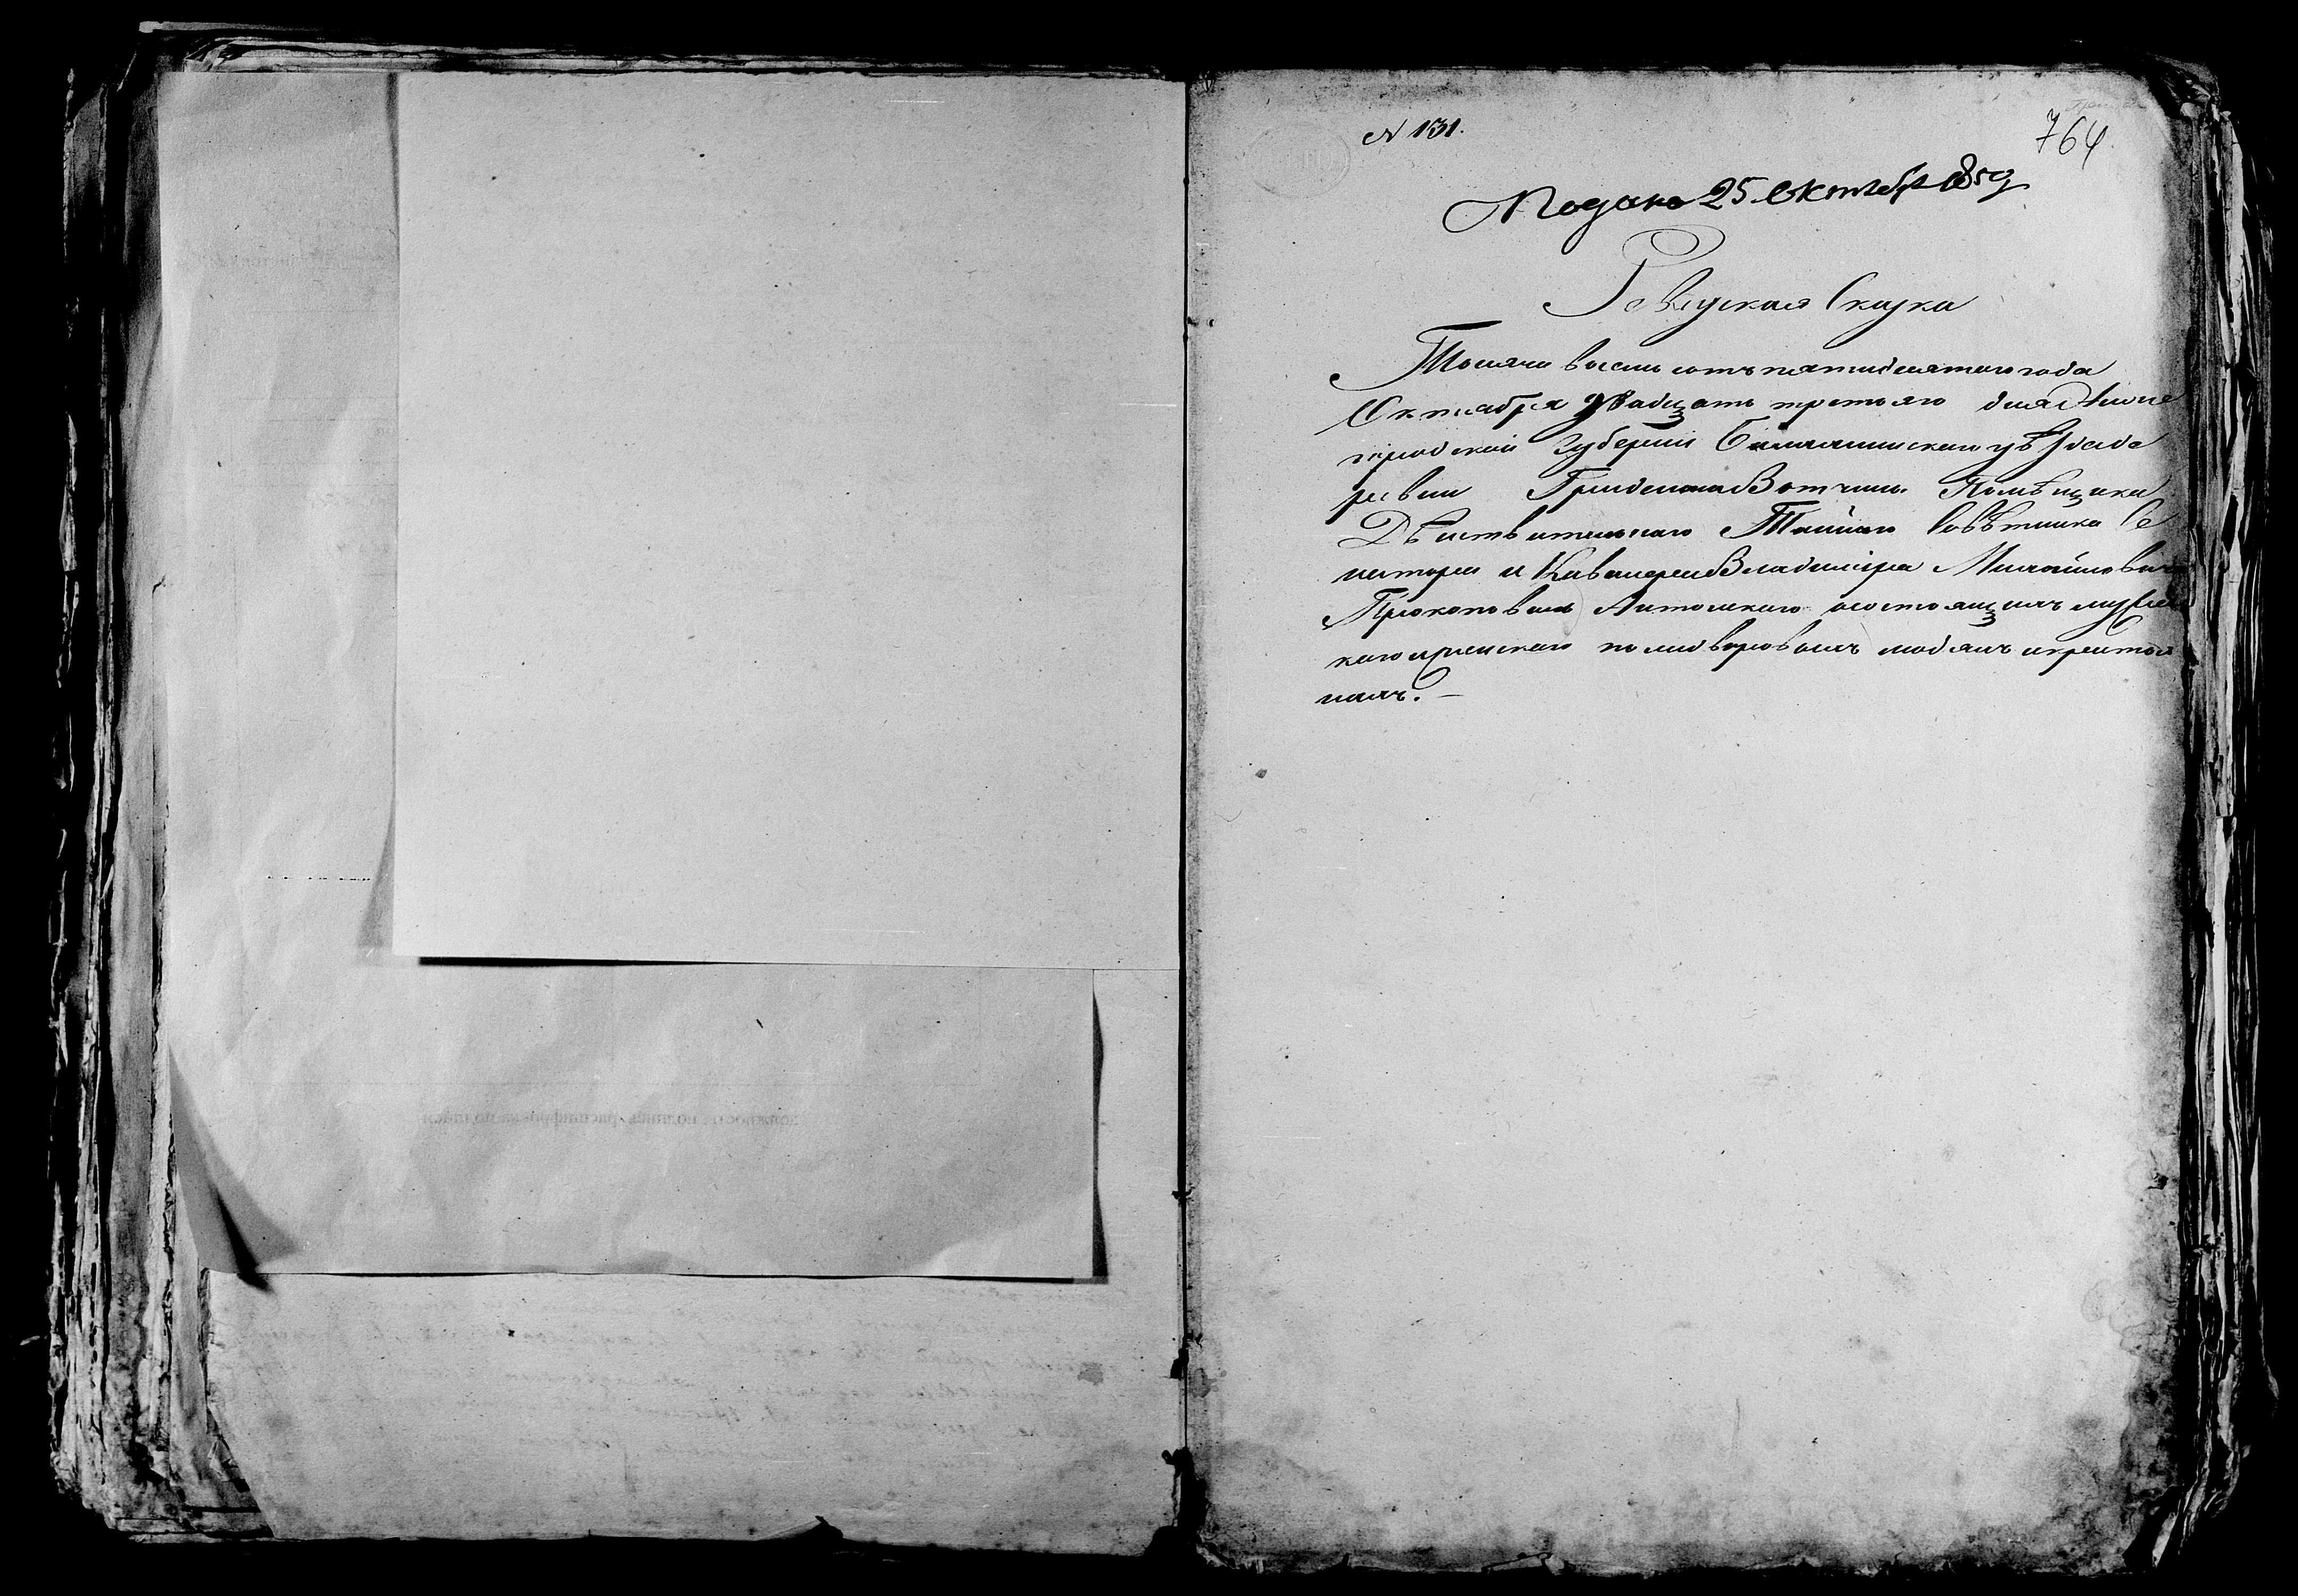 № 131.
764
Подана 25 Октября 1850
Ревизская Сказка
Тысяча восемь сотъ пятидесятого года
Октября двадцать третьяго дня Ниже
городской Губернии Балахнинскаго уѣзда де
ревни Вотчины Помѣщика
Дѣйствительнаго Тайнаго Совѣтника Се
натора и Кавалера Владимира Михайловича
Прокоповичь Антонскаго о состоящихъ мужес
каго и женскаго пола дворовыхъ людяхъ и крестья
нахъ. —